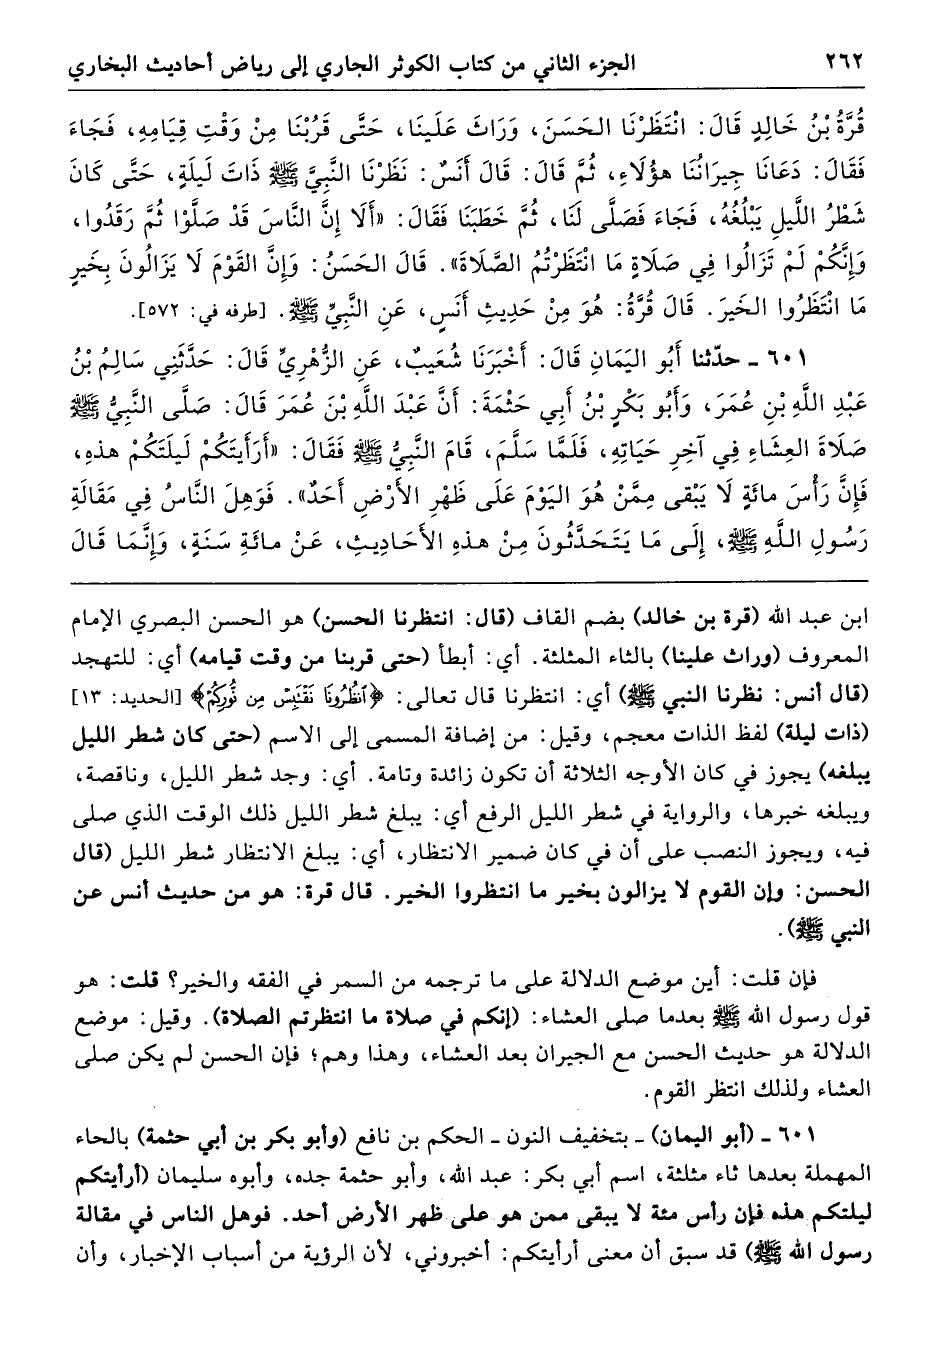 ٢٦٢ الجزء الثاني من كتاب الكوثر الجاري إلى رياض أحاديث البخاري
قُرَّةُ بْنُ خَالِدٍ قَالَ: انْتَظَرْنَا الحَسَنَ، وَرَاثَ عَلَينَا، حَتَّى قَرُبْنَا مِنْ وَقْتِ قِيَامِهِ، فَجَاءَ
فَقَالَ: دَعَانَا جِيرَانُنَا هؤُلَاءِ، ثُمَّ قَالَ: قَالَ أَنَسٌ: نَظَرْنَا النَّبِيَّ ﷺ ذَاتَ لَيلَةٍ، حَتَّى كَانَ
شَطْرُ اللَّيلِ يَبْلُغُهُ، فَجَاءَ فَصَلَّى لَنَا، ثُمَّ خَطَبَنَا فَقَالَ: «أَلَا إِنَّ النَّاسَ قَدْ صَلَّوْا ثُمَّ رَقَدُوا،
وَإِنَّكُمْ لَمْ تَزَالُوا فِي صَلَاةٍ مَا انْتَظَرْتُمُ الصَّلَاةَ». قَالَ الحَسَنُ: وَإِنَّ القَوْمَ لَا يَزَالُونَ بِخَيرٍ
مَا انْتَظَرُوا الخَيرَ. قَالَ قُرَّةُ: هُوَ مِنْ حَدِيثِ أَنَسٍ، عَنِ النَّبِيِّ ﷺ. [طرفه في: ٥٧٢].
٦٠١ ـ حدّثنا أَبُو اليَمَانِ قَالَ: أَخْبَرَنَا شُعَيبٌ، عَنِ الزُّهْرِيِّ قَالَ: حَدَّثَنِي سَالِمُ بْنُ
عَبْدِ اللَّهِ بْنِ عُمَرَ، وَأَبُو بَكْرِ بْنُ أَبِي حَثْمَةَ: أَنَّ عَبْدَ اللَّهِ بْنَ عُمَرَ قَالَ: صَلَّى النَّبِيُّ ﷺ
صَلَاةَ العِشَاءِ فِي آخِرِ حَيَاتِهِ، فَلَمَّا سَلَّمَ، قَامَ النَّبِيُّ ﷺ فَقَالَ: «أَرَأَيتَكُمْ لَيلَتَكُمْ هذِهِ،
فَإِنَّ رَأْسَ مائَةٍ لَا يَبْقى مِمَّنْ هُوَ اليَوْمَ عَلَى ظَهْرِ الأَرْضِ أَحَدٌ». فَوَهِلَ النَّاسُ فِي مَقَالَةِ
رَسُولِ اللَّهِ ﷺ، إِلَى مَا يَتَحَدَّثُونَ مِنْ هذهِ الأَحَادِيثِ، عَنْ مائَةِ سَنَةٍ، وَإِنَّمَا قَالَ
ابن عبد الله (قرة بن خالد) بضم القاف (قال: انتظرنا الحسن) هو الحسن البصري الإمام
المعروف (وراث علينا) بالثاء المثلثة. أي: أبطأ (حتى قربنا من وقت قيامه) أي: للتهجد
(قال أنس: نظرنا النبي ﷺ) أي: انتظرنا قال تعالى: ﴿ٱنظُرُونَا نَقْتَبِسْ مِن نُّورِكُمْ﴾ [الحديد: ١٣]
(ذات ليلة) لفظ الذات معجم، وقيل: من إضافة المسمى إلى الاسم (حتى كان شطر الليل
يبلغه) يجوز في كان الأوجه الثلاثة أن تكون زائدة وتامة. أي: وجد شطر الليل، وناقصة،
ويبلغه خبرها، والرواية في شطر الليل الرفع أي: يبلغ شطر الليل ذلك الوقت الذي صلى
فيه، ويجوز النصب على أن في كان ضمير الانتظار، أي: يبلغ الانتظار شطر الليل (قال
الحسن: وإن القوم لا يزالون بخير ما انتظروا الخير. قال قرة: هو من حديث أنس عن
النبي ﷺ).
فإن قلت: أين موضع الدلالة على ما ترجمه من السمر في الفقه والخير؟ قلت: هو
قول رسول الله ﷺ بعدما صلى العشاء: (إنكم في صلاة ما انتظرتم الصلاة). وقيل: موضع
الدلالة هو حديث الحسن مع الجيران بعد العشاء، وهذا وهم؛ فإن الحسن لم يكن صلى
العشاء ولذلك انتظر القوم.
٦٠١ ـ (أبو اليمان) ـ بتخفيف النون ـ الحكم بن نافع (وأبو بكر بن أبي حثمة) بالحاء
المهملة بعدها ثاء مثلثة، اسم أبي بكر: عبد الله، وأبو حثمة جده، وأبوه سليمان (أرأيتكم
ليلتكم هذه فإن رأس مئة لا يبقى ممن هو على ظهر الأرض أحد. فوهل الناس في مقالة
رسول الله ﷺ) قد سبق أن معنى أرأيتكم: أخبروني، لأن الرؤية من أسباب الإخبار، وأن